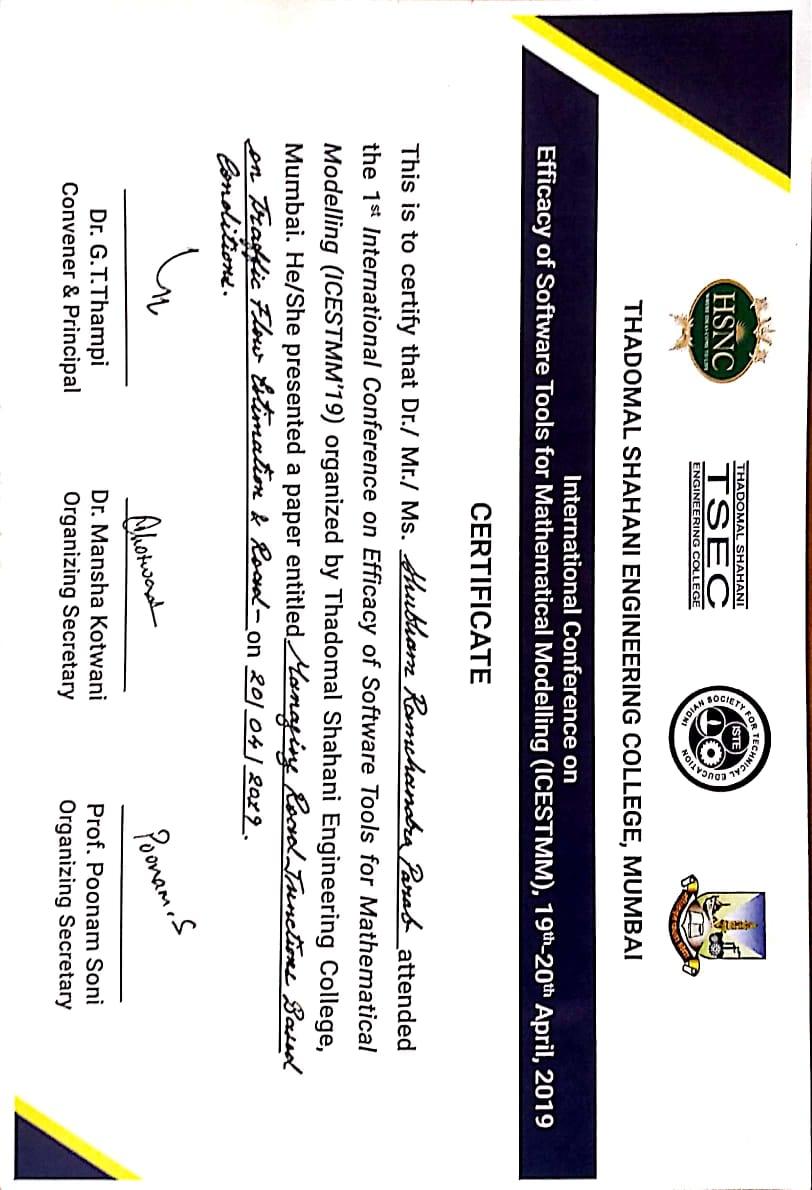 HSNC
WHERE IDEAS COME TO LIFE
THADOMAL SHAHANI
TSEC
ENGINEERING COLLEGE
INDIAN SOCIETY FOR TECHNICAL EDUCATION
ISTE
THADOMAL SHAHANI ENGINEERING COLLEGE, MUMBAI
International Conference on
Efficacy of Software Tools for Mathematical Modelling (ICESTMM), 19th-20th April, 2019
CERTIFICATE
This is to certify that Dr./ Mr./ Ms. Shubham Ramchandra Parab attended
the 1st International Conference on Efficacy of Software Tools for Mathematical
Modelling (ICESTMM'19) organized by Thadomal Shahani Engineering College,
Mumbai. He/She presented a paper entitled Managing Road Junctions Based
on Traffic Flow Estimation & Road - on 20/04/2019.
Conditions.
Poonam.S
Dr. G.T.Thampi
Convener & Principal
Dr. Mansha Kotwani
Organizing Secretary
Prof. Poonam Soni
Organizing Secretary